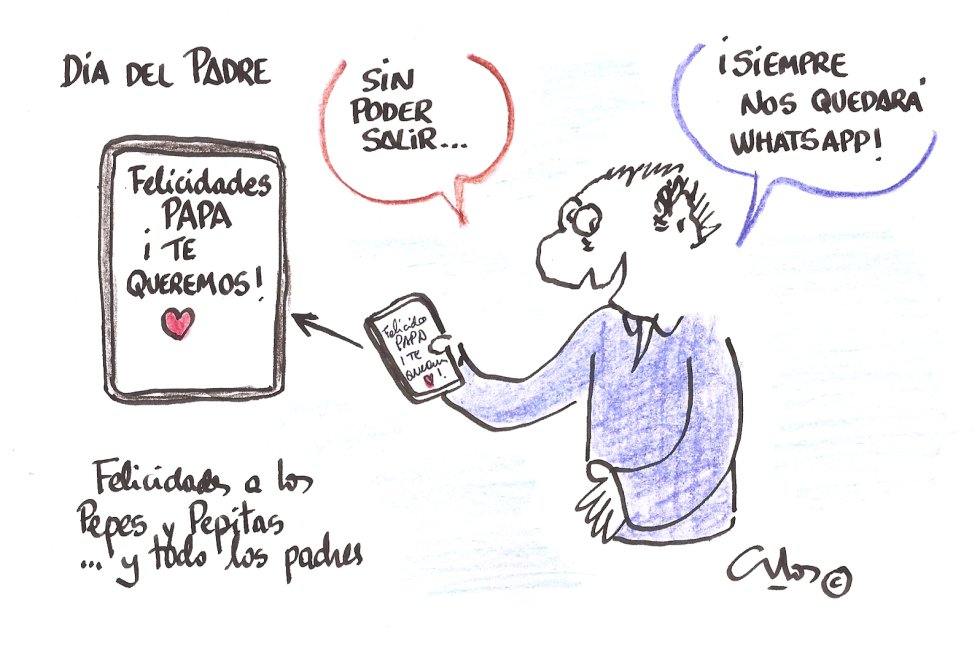 DIA DEL PADRE
SIN
PODER
SALIR...
¡SIEMPRE
NOS QUEDARÁ
WHATSAPP!
Felicidades
PAPA
¡TE
QUEREMOS!
PAPA
¡TE
Felicidades a los
Pepes y Pepitas
... y todo los padres
©